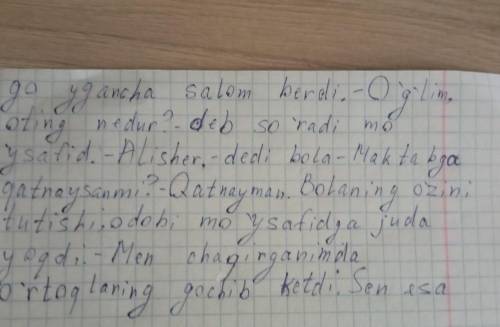 ga ygancha salom berdi.-O'g'lim.
oting nedur?-deb so'radi mo
ysafid.-Alisher.-dedi bola-Maktabga
qatnaysanmi?-Qatnayman. Bolaning o'zini
tutishi, odobi mo'ysafidga juda
yoqdi.-Men chaqirganimda
o'rtoqlaning qochib ketdi. Sen esa